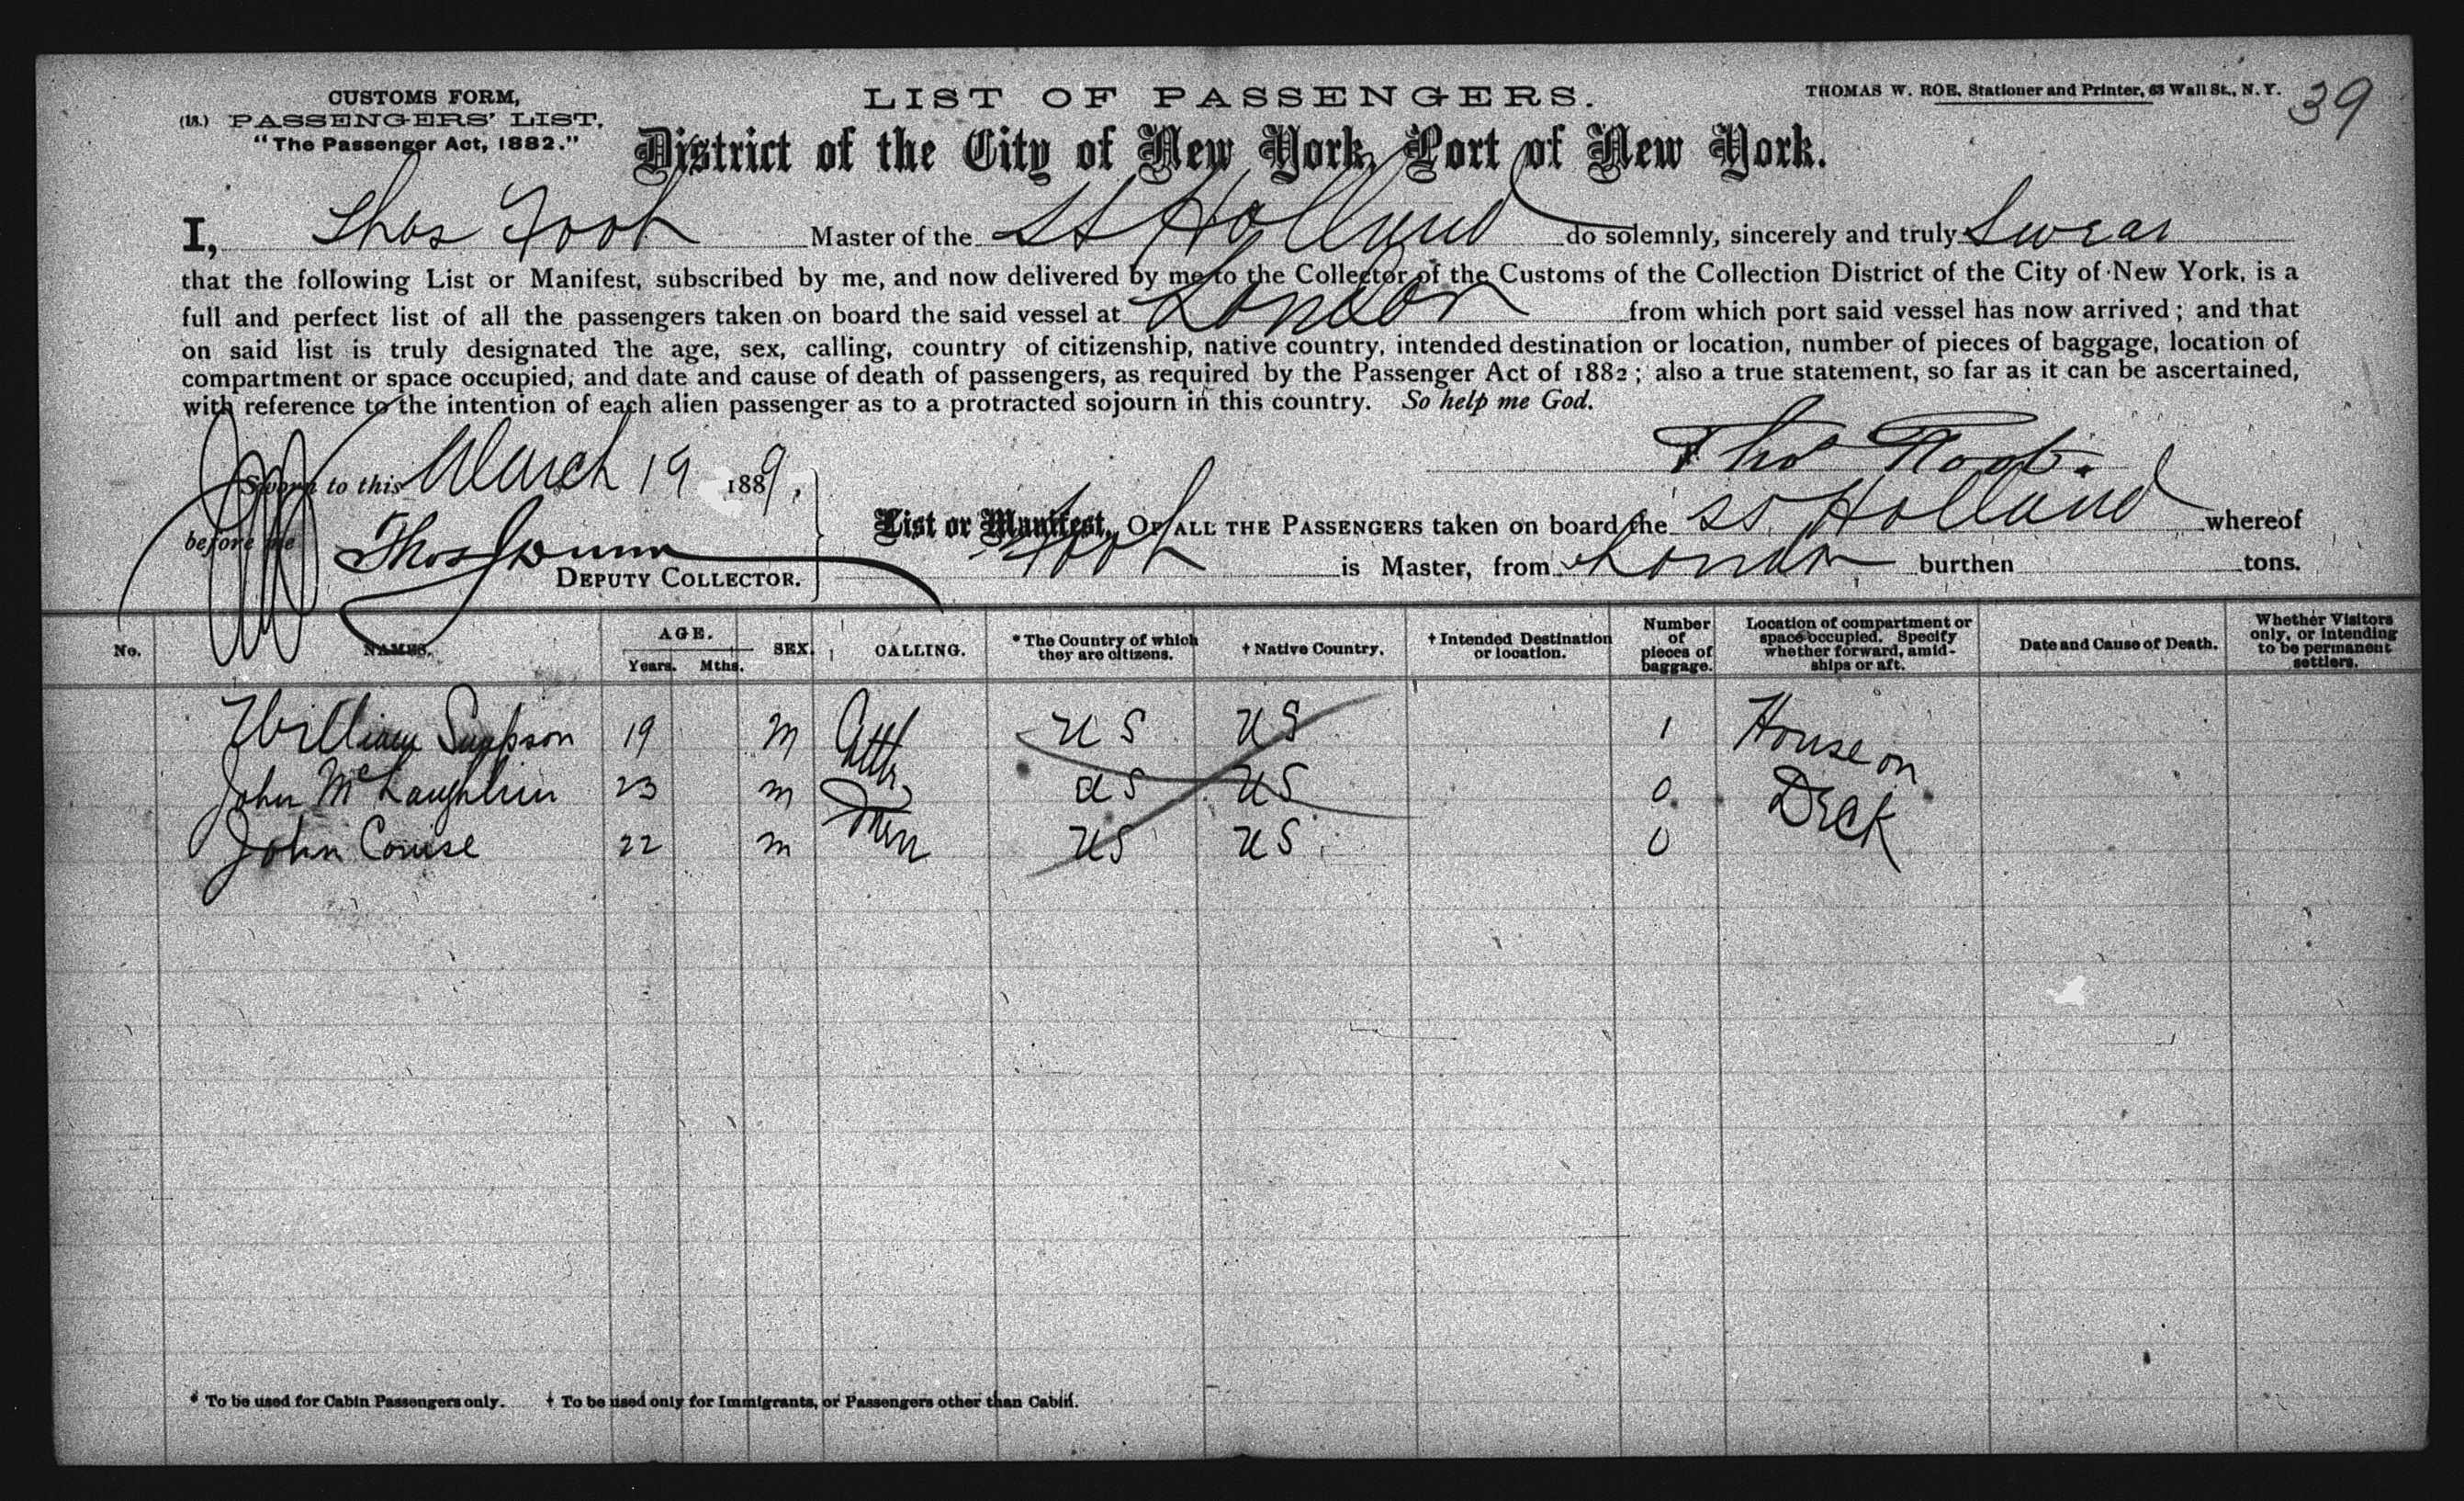 CUSTOMS FORM,
(18.) PASSENGERS' LIST,
"The Passenger Act, 1882."
LIST OF PASSENGERS.
THOMAS W. ROE, Stationer and Printer, 63 Wall St., N. Y.
39
District of the City of New York, Port of New York.
I, Thos Foot Master of the SS Holland do solemnly, sincerely and truly Swear
that the following List or Manifest, subscribed by me, and now delivered by me to the Collector of the Customs of the Collection District of the City of New York, is a
full and perfect list of all the passengers taken on board the said vessel at London from which port said vessel has now arrived ; and that
on said list is truly designated the age, sex, calling, country of citizenship, native country, intended destination or location, number of pieces of baggage, location of
compartment or space occupied, and date and cause of death of passengers, as required by the Passenger Act of 1882 ; also a true statement, so far as it can be ascertained,
with reference to the intention of each alien passenger as to a protracted sojourn in this country. So help me God.
Tho Foot.
Sworn to this March 19 1889,
before me Thos Dunn
DEPUTY COLLECTOR.
List or Manifest, OF ALL THE PASSENGERS taken on board the SS Holland whereof
Foot is Master, from London burthen tons.
No. NAMES. AGE. Years. Mths. SEX. CALLING. * The Country of which they are citizens. † Native Country. † Intended Destination or location. Number of pieces of baggage. Location of compartment or space occupied. Specify whether forward, amidships or aft. Date and Cause of Death. Whether Visitors only, or intending to be permanent settlers.
William Simpson 19 M US US 1 House on
John McLaughlin 23 m US US 0 Deck
John Couse 22 m Men US US 0
* To be used for Cabin Passengers only. † To be used only for Immigrants, or Passengers other than Cabin.